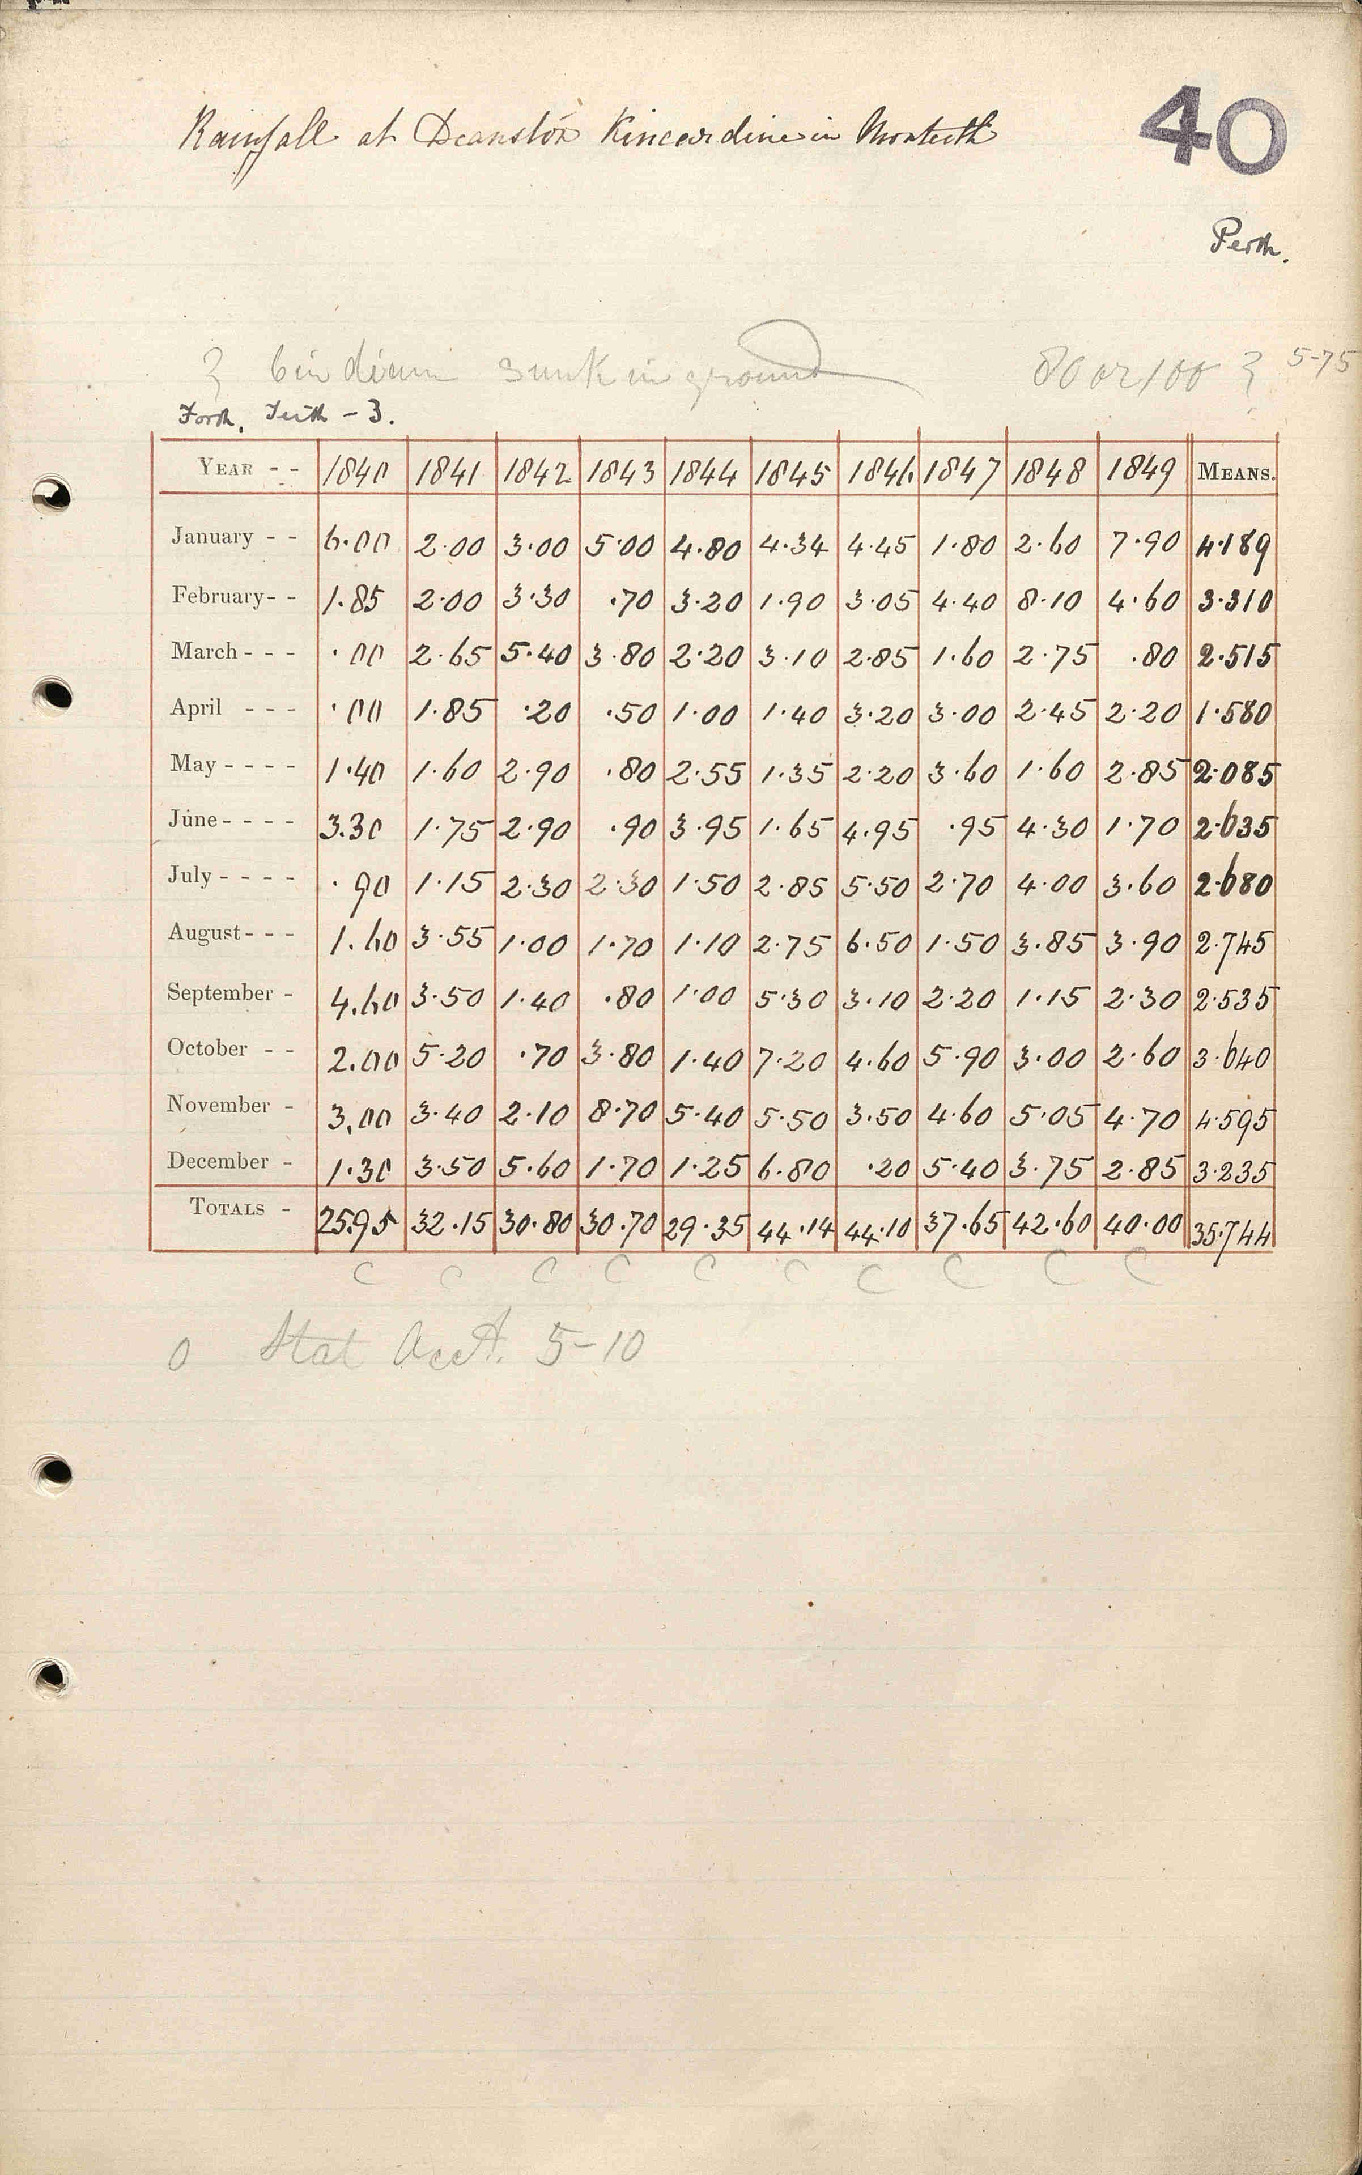 40
Rainfall at Deanston Kincardine in Monteith
Perth.
6 in diam sunk in ground 80 or 100 5-75
Forth, Teith - 3.
YEAR - - 1840 1841 1842 1843 1844 1845 1846 1847 1848 1849 MEANS.
January - - 6.00 2.00 3.00 5.00 4.80 4.34 4.45 1.80 2.60 7.90 4.189
February - - 1.85 2.00 3.30 .70 3.20 1.90 3.05 4.40 8.10 4.60 3.310
March - - - .00 2.65 5.40 3.80 2.20 3.10 2.85 1.60 2.75 .80 2.515
April - - - .00 1.85 .20 .50 1.00 1.40 3.20 3.00 2.45 2.20 1.580
May - - - - 1.40 1.60 2.90 .80 2.55 1.35 2.20 3.60 1.60 2.85 2.085
June - - - - 3.30 1.75 2.90 .90 3.95 1.65 4.95 .95 4.30 1.70 2.635
July - - - - .90 1.15 2.30 2.30 1.50 2.85 5.50 2.70 4.00 3.60 2.680
August - - - 1.60 3.55 1.00 1.70 1.10 2.75 6.50 1.50 3.85 3.90 2.745
September - 4.60 3.50 1.40 .80 1.00 5.30 3.10 2.20 1.15 2.30 2.535
October - - 2.00 5.20 .70 3.80 1.40 7.20 4.60 5.90 3.00 2.60 3.640
November - 3.00 3.40 2.10 8.70 5.40 5.50 3.50 4.60 5.05 4.70 4.595
December - 1.30 3.50 5.60 1.70 1.25 6.80 .20 5.40 3.75 2.85 3.235
TOTALS - 25.95 32.15 30.80 30.70 29.35 44.14 44.10 37.65 42.60 40.00 35.744
C C C C C C C C C C
0 Stat Acct. 5-10